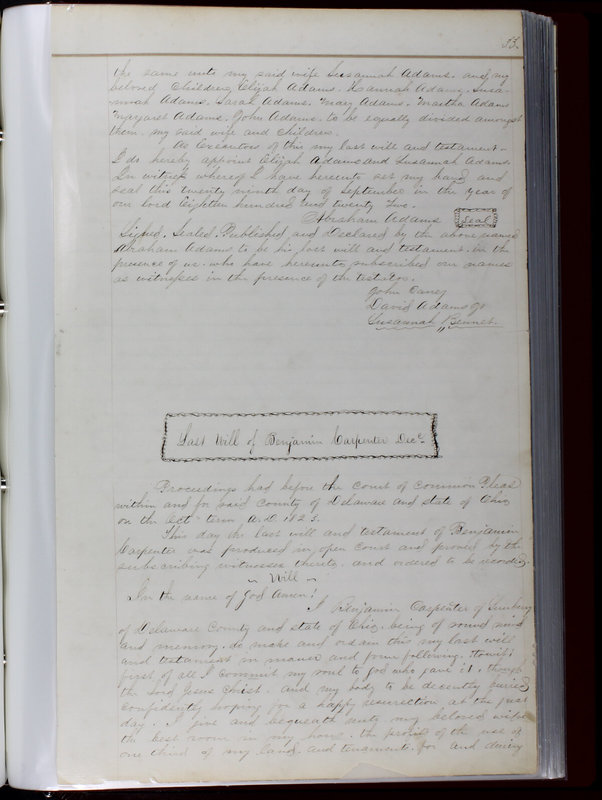 53.
the same unto my said wife Susannah Adams. and my
beloved Children, Elijah Adams. Hannah Adams, Susa-
nnah Adams. Sarah Adams. Mary Adams. Martha Adams
Margaret Adams. John Adams. to be equally divided amongst
them. my said wife and children.
As Executors of this my last will and testament-
I do hereby appoint Elijah Adams and Susannah Adams.
In witness whereof I have hereunto set my hand and
seal this twenty ninth day of September in the year of
our lord Eighteen hundred and twenty two.
Abraham Adams Seal
Signed, Sealed, Published and Declared by the above named
Abraham Adams to be his last will and testament. in the
presence of us. who have hereunto subscribed our names
as witnesses in the presence of the testator.
John Caney
David Adams Jr
Susannah Bennet.
Last Will of Benjamin Carpenter Decd.
Proceedings had before the Court of Common Pleas
within and for said County of Delaware and state of Ohio
on the Oct. term A.D. 1823.
This day the last will and testament of Benjamin
Carpenter was produced in open Court and proved by the
subscribing witnesses thereto. and ordered to be recorded.
~ Will ~
In the name of God Amen!
I Benjamin Carpenter of Sunbury
of Delaware County and state of Ohio. being of sound mind
and memory. do make and ordain this my last will
and testament in manner and form following. towit:
first of all I commit my soul to god who gave it, though
the Lord Jesus Christ. and my body to be decently buried
confidently hoping for a happy resurrection at the just
day. I give and bequeath unto my beloved wife
the best room in my house. the profits of the use of
one third of my land and tenaments. for and during